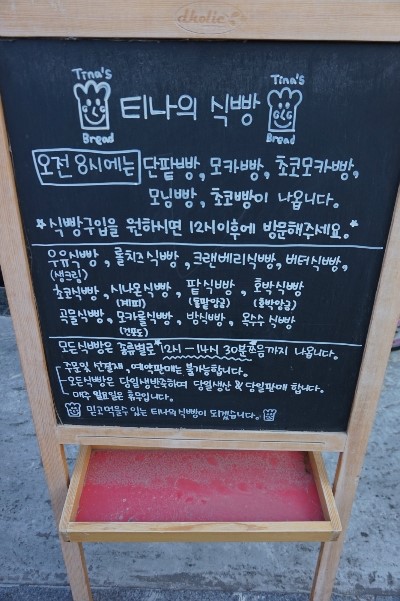 dholic
Tina's Tina's
티나의 식빵
Bread Bread
오전 8시에는 단팥빵, 모카빵, 초코모카빵,
모닝빵, 초코빵이 나옵니다.
*식빵구입을 원하시면 12시이후에 방문해주세요.*
우유식빵, 롤치즈식빵, 크랜베리식빵, 버터식빵,
(생크림)
초코식빵, 시나몬식빵, 팥식빵, 호박식빵
(계피) (통팥앙금) (호박앙금)
곡물식빵, 모카몰식빵, 밤식빵, 옥수수식빵
(건포도)
모든식빵은 종류별로 *12시-14시 30분쯤까지 나옵니다.
주문및 선결제, 예약판매는 불가능합니다.
모든식빵은 당일생반죽하여 당일생산 & 당일판매 합니다.
매주 일요일은 휴무입니다.
믿고먹을수 있는 티나의식빵이 되겠습니다.